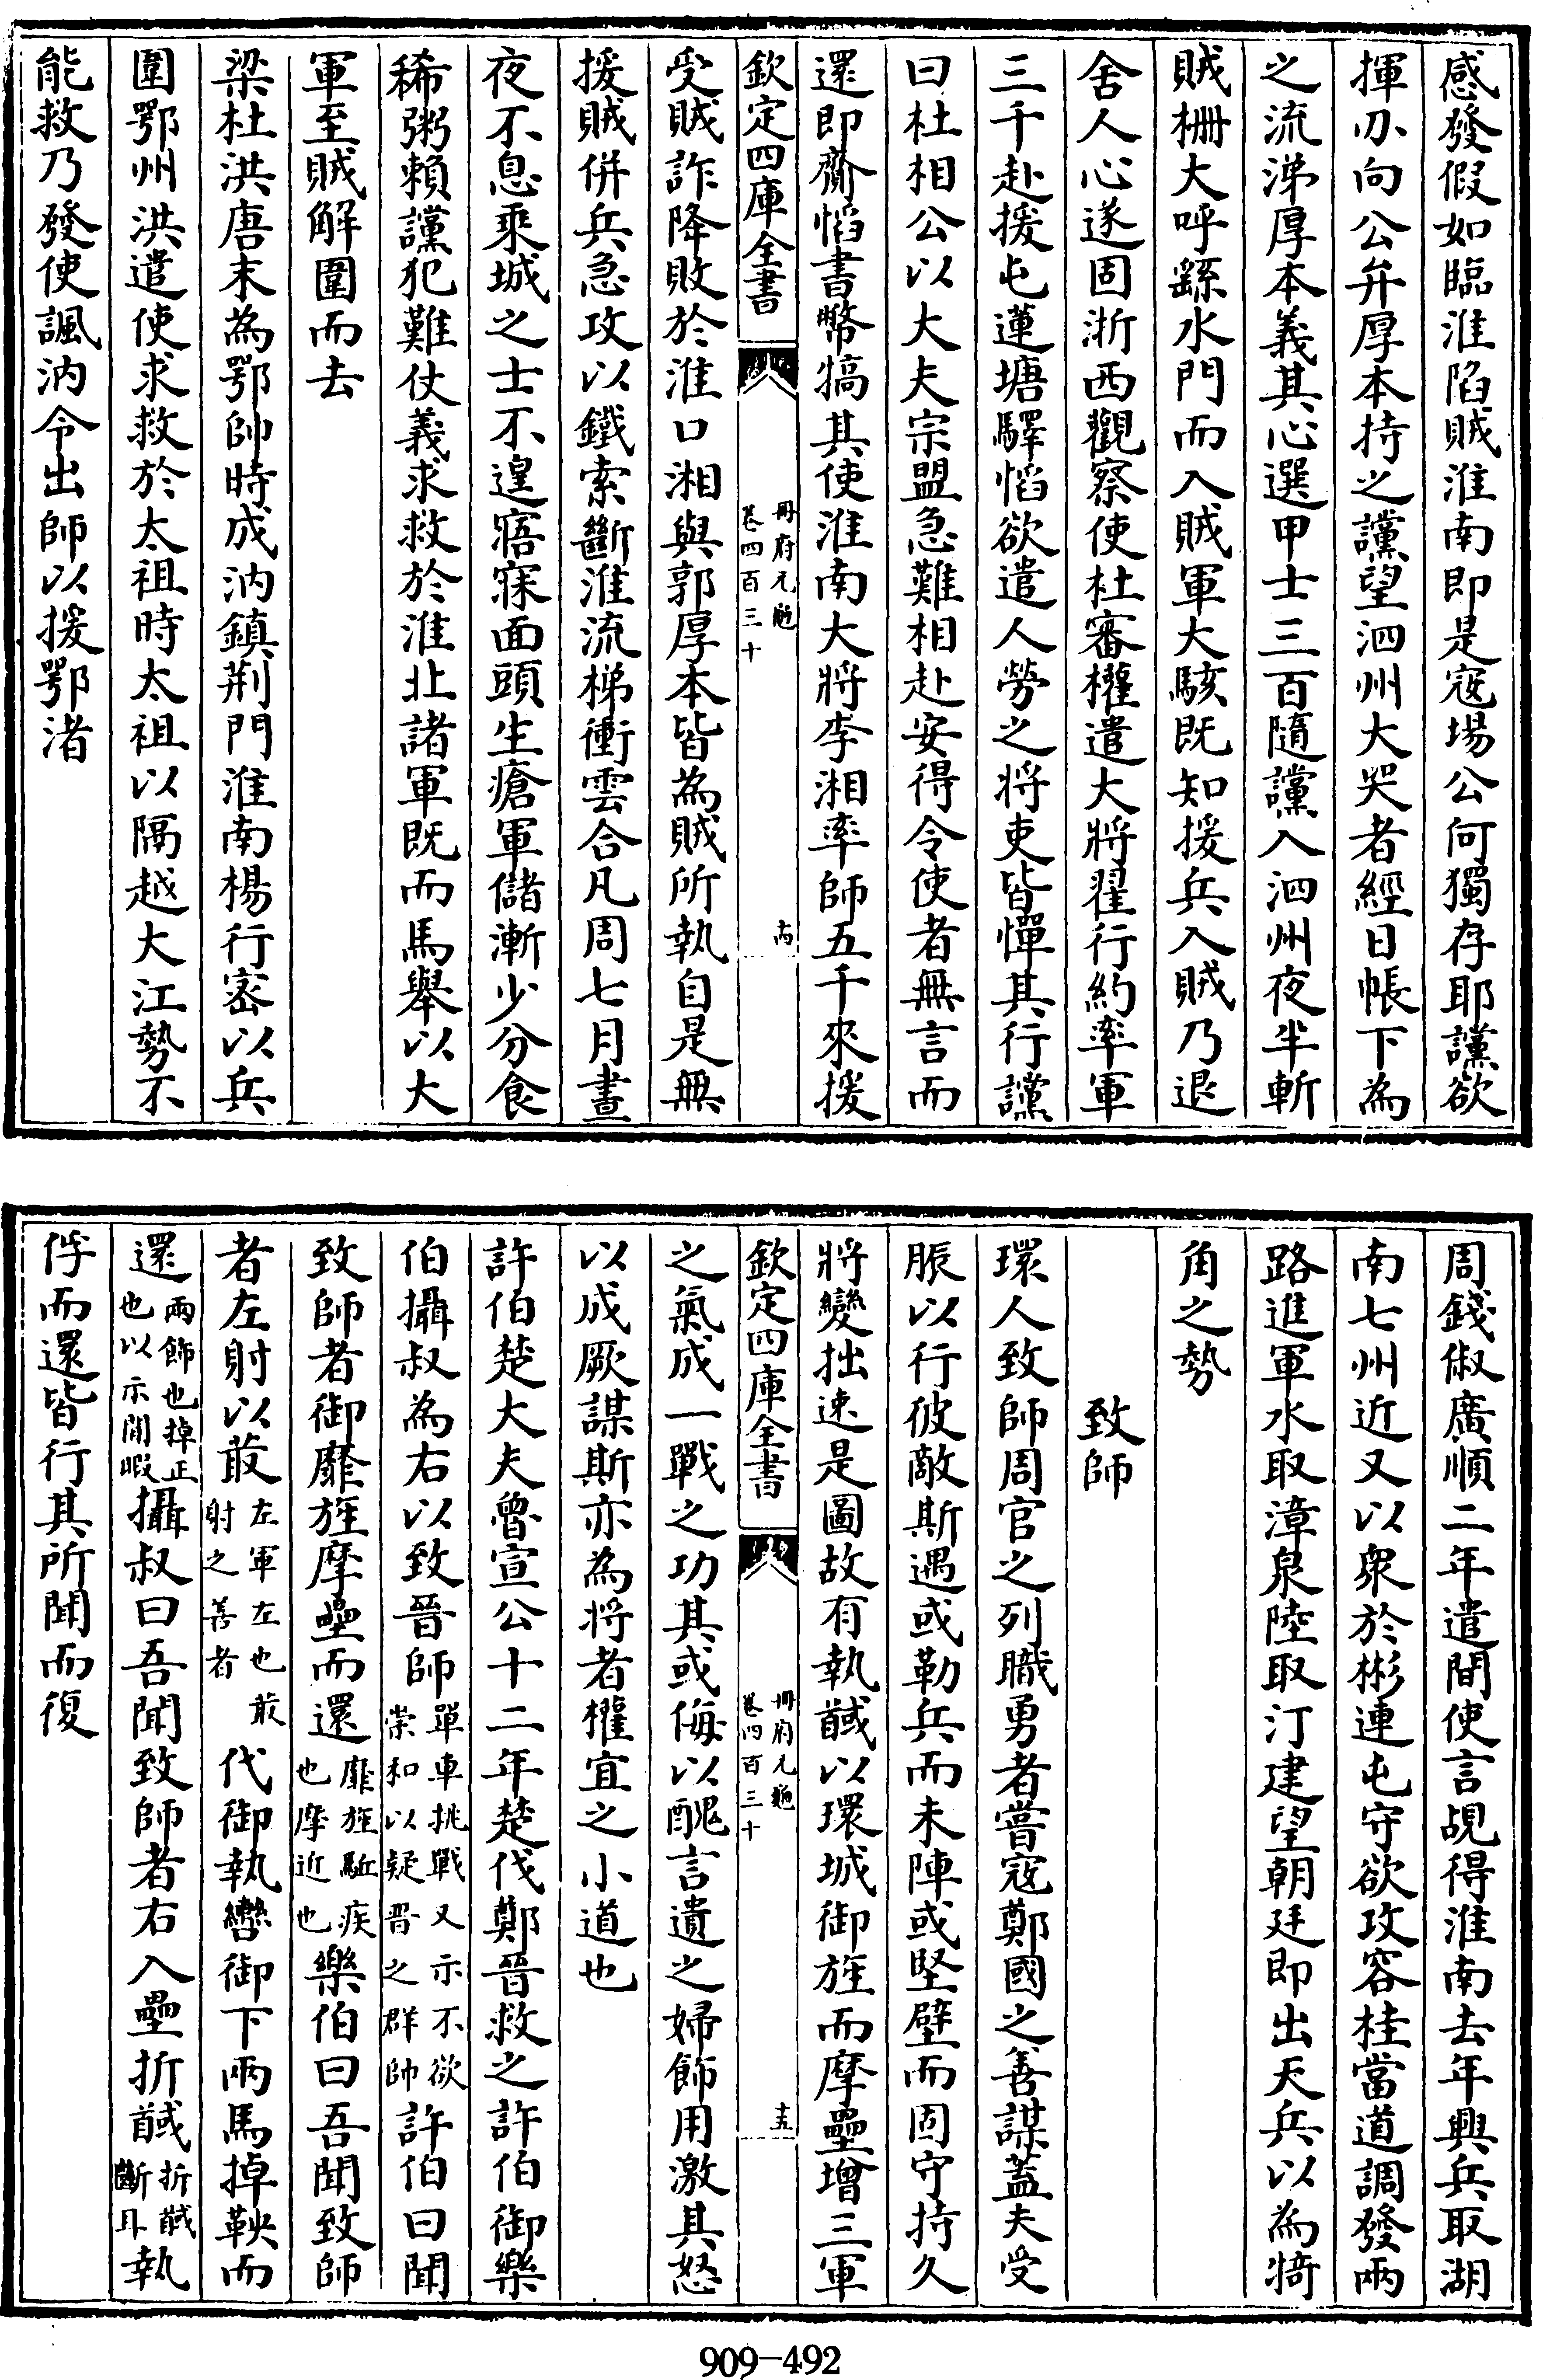 感發假如臨淮陷賊淮南即是寇場公何獨存耶讜欲
揮刃向公弁厚本持之讜望泗州大哭者經日帳下為
之流涕厚本義其心選甲士三百隨讜入泗州夜半斬
賊柵大呼繇水門而入賊軍大駭既知援兵入賊乃退
舍人心遂固浙西觀察使杜審權遣大將翟行約率軍
三千赴援屯蓮塘驛慆欲遣人勞之將吏皆憚其行讜
曰杜相公以大夫宗盟急難相赴安得令使者無言而
還即齎慆書幣犒其使淮南大將李湘率師五千來援
欽定四庫全書
冊府元龜
卷四百三十
十四
受賊詐降敗於淮口湘與郭厚本皆為賊所執自是無
援賊併兵急攻以鐵索斷淮流梯衝雲合凡周七月晝
夜不息乘城之士不遑寤寐面頭生瘡軍儲漸少分食
稀粥賴讜犯難仗義求救於淮北諸軍既而馬舉以大
軍至賊解圍而去
梁杜洪唐末為鄂帥時成汭鎮荊門淮南楊行密以兵
圍鄂州洪遣使求救於太祖時太祖以隔越大江勢不
能救乃發使諷汭令出師以援鄂渚
周錢俶廣順二年遣間使言覘得淮南去年興兵取湖
南七州近又以衆於彬連屯守欲攻容桂當道調發兩
路進軍水取漳泉陸取汀建望朝廷即出天兵以為犄
角之勢
致師
環人致師周官之列職勇者嘗寇鄭國之善謀蓋夫受
脤以行彼敵斯遇或勒兵而未陣或堅壁而固守持久
將變拙速是圖故有執馘以環城御旌而摩壘增三軍
欽定四庫全書
冊府元龜
卷四百三十
十五
之氣成一戰之功其或侮以醜言遺之婦飾用激其怒
以成厥謀斯亦為將者權宜之小道也
許伯楚大夫魯宣公十二年楚伐鄭晉救之許伯御樂
伯攝叔為右以致晉師單車挑戰又示不欲崇和以疑晉之群帥許伯曰聞
致師者御靡旌摩壘而還靡旌驅疾也摩近也樂伯曰吾聞致師
者左射以菆左軍左也菆射之善者代御執轡御下兩馬掉鞅而
還兩飾也掉正也以示閒暇攝叔曰吾聞致師者右入壘折馘折馘斷耳執
俘而還皆行其所聞而復
909-492